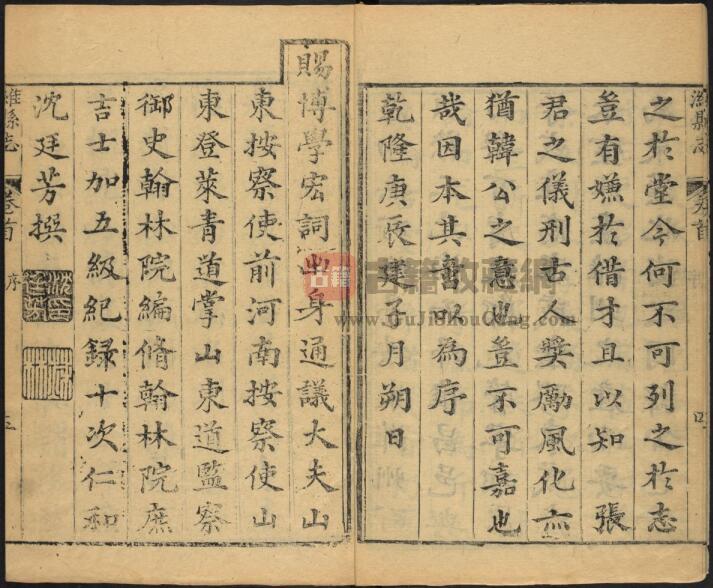 之於堂今何不可列之於志
豈有嫌於借才且以知 張
君之儀刑古人獎勵風化亦
猶韓公之意也豈不可嘉也
哉因本其書以為序
乾隆庚辰建子月朔日
賜博學宏詞出身通議大夫山
東按察使前河南按察使山
東登萊青道掌山東道監察
御史翰林院編脩翰林院庶
吉士加五級紀錄十次仁和
沈廷芳撰
濰縣志
卷首
序
五
濰縣志
卷首
四
古籍
古籍收藏網
www.GuJiShouCang.com